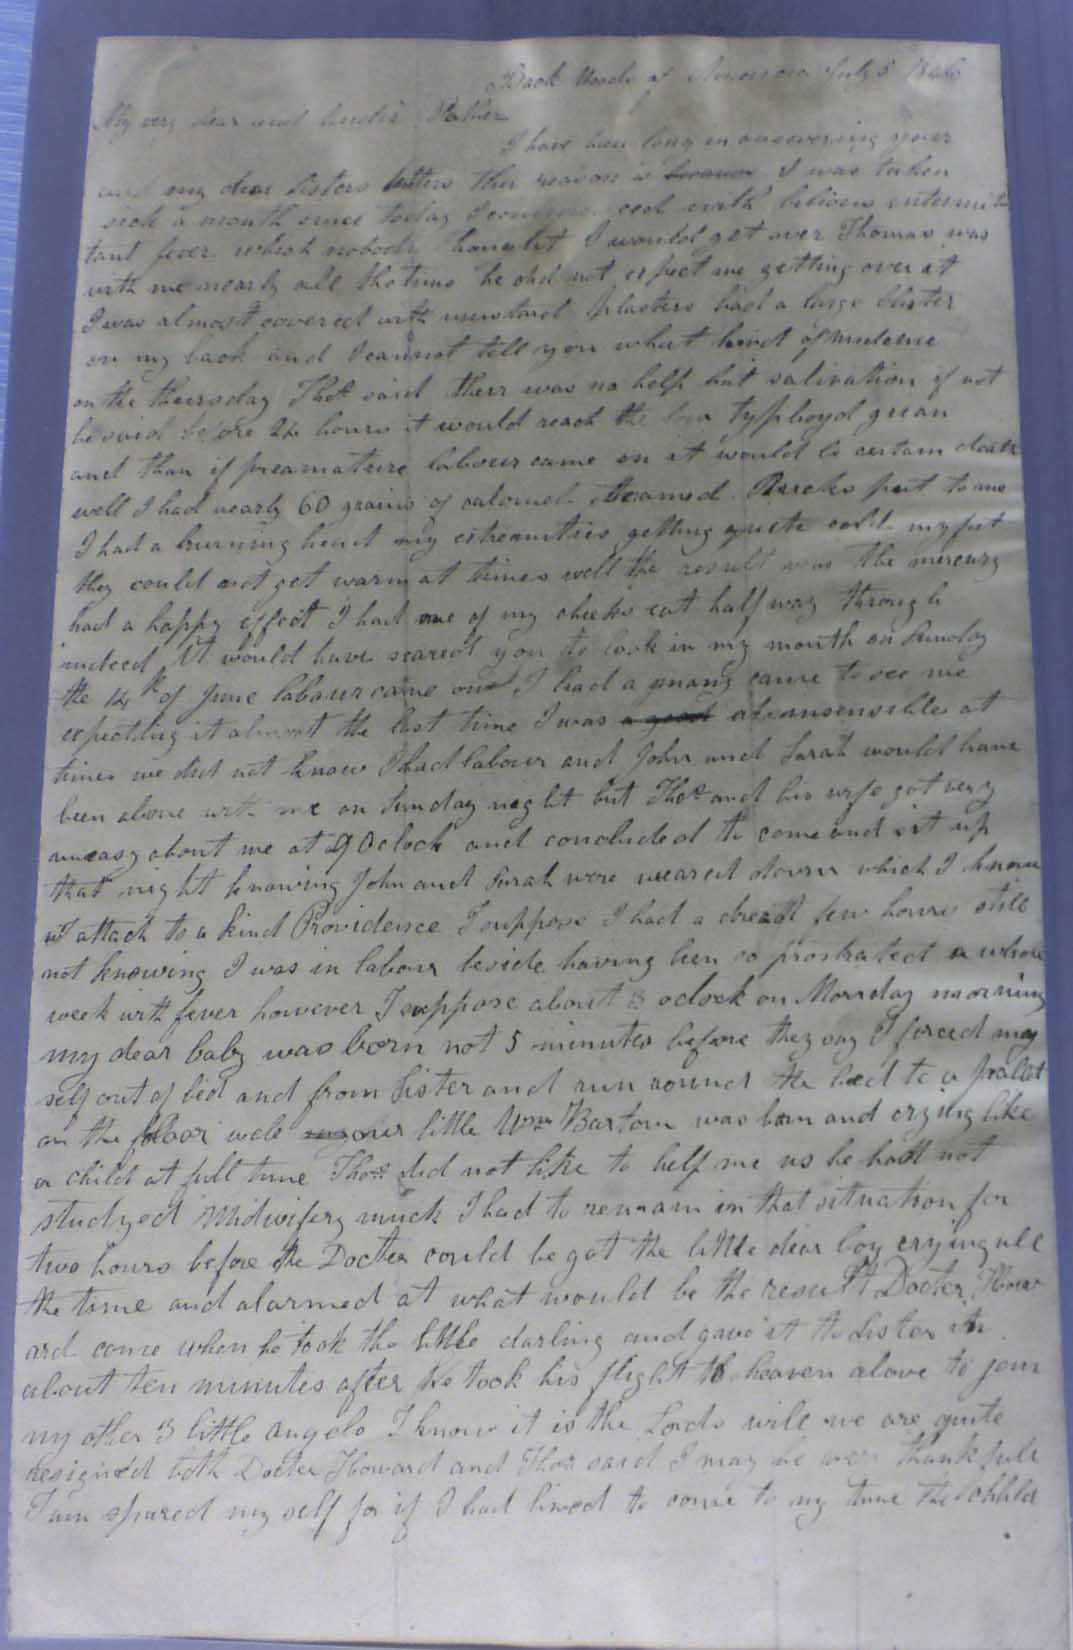 Back Woods of America July 5 1846
My very dear and tender Father
I have been long in answering your
and my dear Sisters letters the reason is because I was taken
sick a month since today I commenced with bilious intermit
tant fever which nobody thought I would get over Thomas was
with me nearly all the time he did not expect me getting over it
I was almost covered with mustard plasters had a large blister
on my back and I cannot tell you what kind of medecine
on the thursday Thos said there was no help but salivation if not
he said before 24 hours it would reach the low typhoyd
and than if preamature labour came on it would be certain death
well I had nearly 60 grains of calomel Steamed Bricks put to me
I had a burning head my extreamities getting quite cold my feet
they could not get warm at times well the result was the mercury
had a happy effect I had one of my cheeks eat half way through
indeed it would have scared you to look in my mouth on Sunday
the 14th of June labour came on I had a many came to see me
expecting it almost the last time I was a good at
times we did not know I had labour and John and Sarah would have
been alone with me on Sunday night but Thos and his wife got very
uneasy about me at 9 Oclock and concluded to come and sit up
that night knowing John and Sarah were weared down which I know
attach to a kind Providence I suppose I had a dreadfl few hours still
not knowing I was in labour beside having been so prostrated a whole
week with fever however I suppose about 3 oclock on Monday morning
my dear baby was born not 5 minutes before they say I forced my
self out of bed and from Sister and run round the bed to a pallet
on the floor wele my our little Wm Barton was born and crying like
a child at full time Thos did not like to help me as he had not
studyed Midwifery much I had to remain in that situation for
two hours before the Docter could be got the little dear boy crying all
the time and alarmed at what would be the result Docter How
ard come when he took the little darling and gave it to Sister in
about ten minutes after he took his flight to heaven above to join
my other 3 little angels I know it is the Lords will we are quite
resigned both Docter Howard and Thos said I may be very thankfull
I am spared my self for if I had lived to come to my time the child